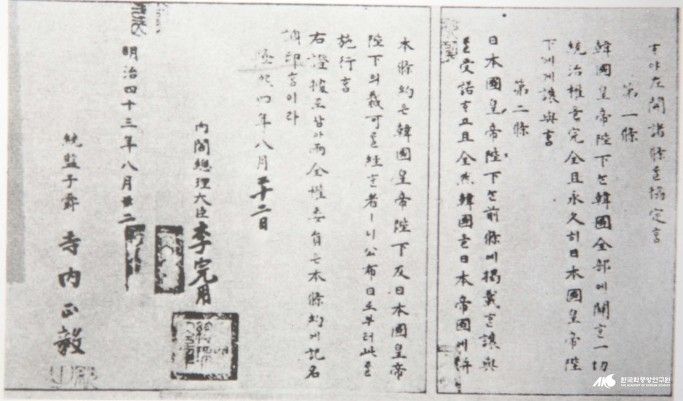 ᄒᆞ야左開諸條를協定홈
第一條
韓國皇帝陛下는韓國全部에關ᄒᆞᆫ一切
統治權을完全且永久히日本國皇帝陛
下에게讓與홈
第二條
日本國皇帝陛下는前條에揭載ᄒᆞᆫ讓與
를受諾ᄒᆞ고且全然韓國을日本帝國에併
本條約은韓國皇帝陛下及日本國皇帝
陛下의裁可를經ᄒᆞᆫ者ㅣ니公布日로부터此를
施行홈
右證據로삼아兩全權委員은本條約에記名
調印홈이라
隆熙四年八月二十二日
內閣總理大臣 李完用
明治四十三年八月廿二
統監子爵 寺內正毅
한국학중앙연구원
THE ACADEMY OF KOREAN STUDIES